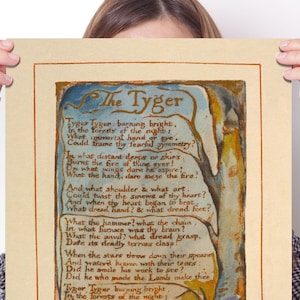 The Tyger
Tyger Tyger, burning bright,
In the forests of the night;
What immortal hand or eye,
Could frame thy fearful symmetry?
In what distant deeps or skies
Burnt the fire of thine eyes?
On what wings dare he aspire?
What the hand, dare sieze the fire?
And what shoulder, & what art,
Could twist the sinews of thy heart?
And when thy heart began to beat,
What dread hand? & what dread feet?
What the hammer? what the chain
In what furnace was thy brain?
What the anvil? what dread grasp,
Dare its deadly terrors clasp?
When the stars threw down their spears
And water'd heaven with their tears:
Did he smile his work to see?
Did he who made the Lamb make thee?
Tyger Tyger burning bright
In the forests of the night: